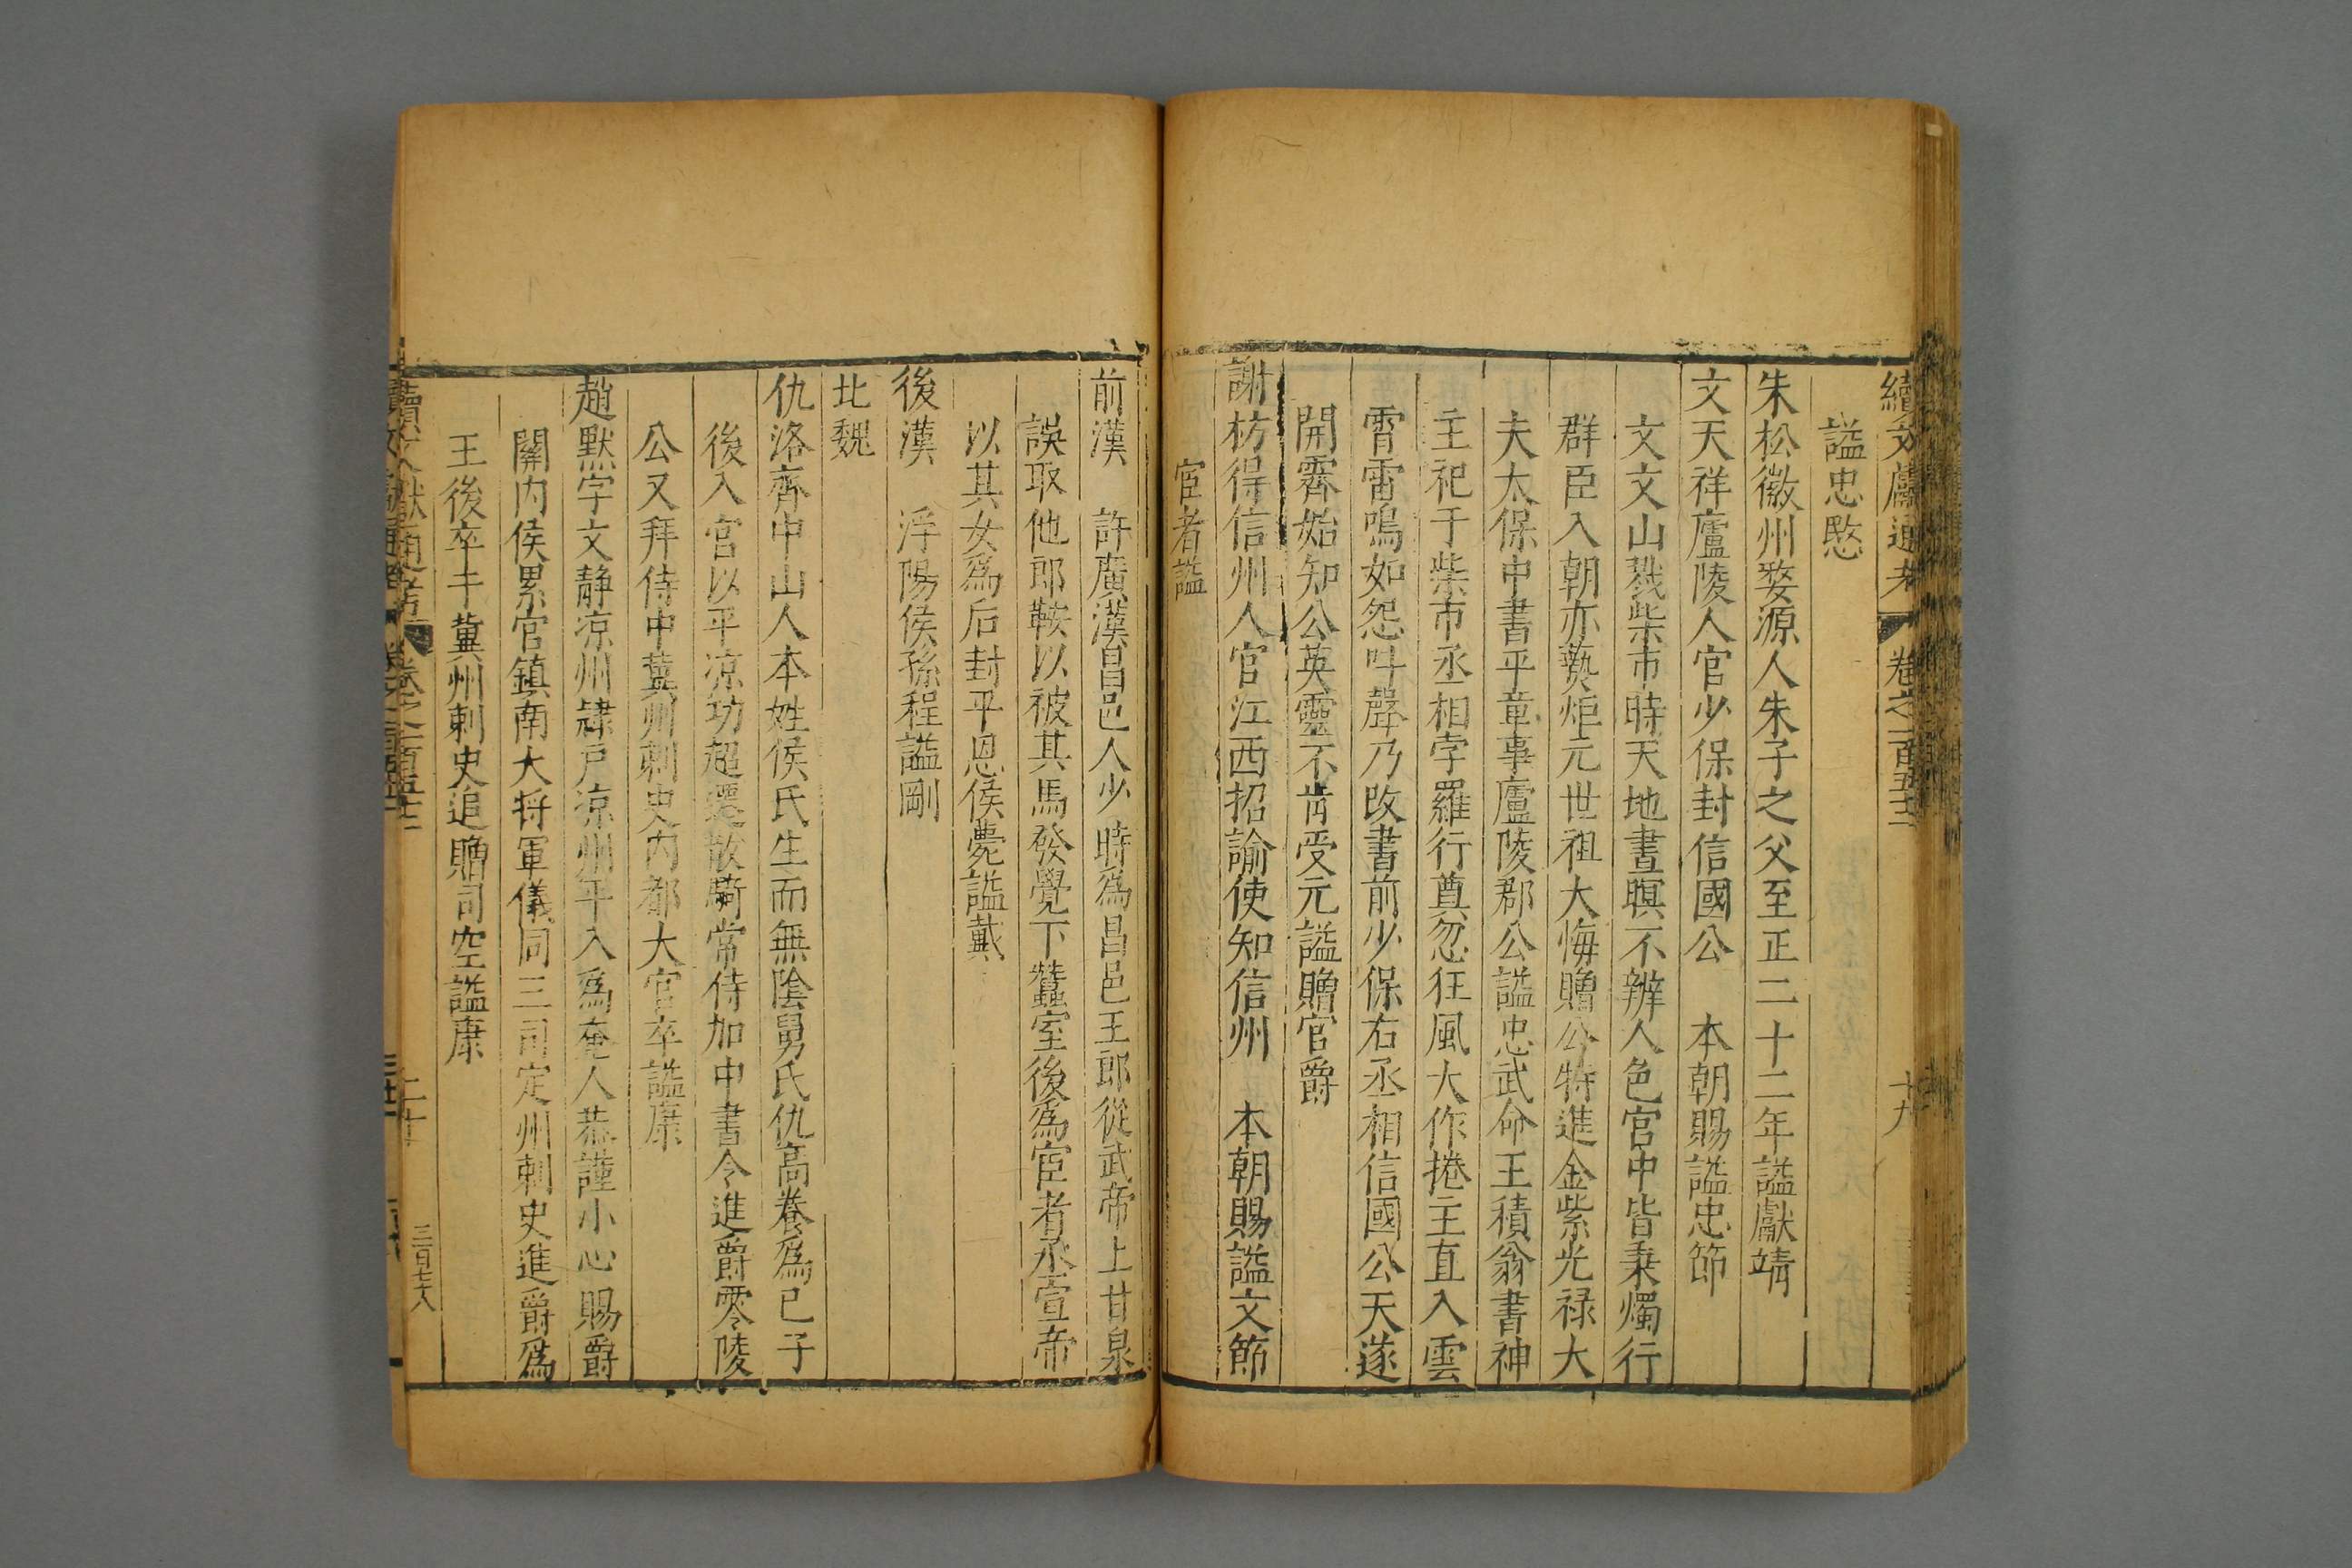 續文獻通考 卷之一百五十二 十九
謚忠愍
朱松徽州婺源人朱子之父至正二十二年謚獻靖
文天祥廬陵人官少保封信國公 本朝賜謚忠節
文文山戮柴市時天地晝暝不辨人色宮中皆秉燭行
群臣入朝亦爇炬元世祖大悔贈公特進金紫光祿大
夫太保中書平章事廬陵郡公謚忠武命王積翁書神
主祀于柴市丞相孛羅行奠忽狂風大作捲主直入雲
霄雷鳴如怨叶聲乃改書前少保右丞相信國公天遂
開霽始知公英靈不肯受元謚贈官爵
謝枋得信州人官江西招諭使知信州 本朝賜謚文節
宦者謚
前漢 許廣漢昌邑人少時為昌邑王郎從武帝上甘泉
誤取他郎鞍以被其馬發覺下蠶室後為宦者丞宣帝
以其女為后封平恩侯薨謚戴
後漢 浮陽侯孫程謚剛
北魏
仇洛齊中山人本姓侯氏生而無陰舅氏仇嵩養為己子
後入宮以平凉功超遷散騎常侍加中書令進爵零陵
公又拜侍中冀州刺史內都大官卒謚康
趙默字文静凉州隸戶凉州平入為奄人恭謹小心賜爵
關內侯累官鎮南大將軍儀同三司定州刺史進爵為
王後卒于冀州刺史追贈司空謚康
續文獻通考 卷之一百五十二 二十